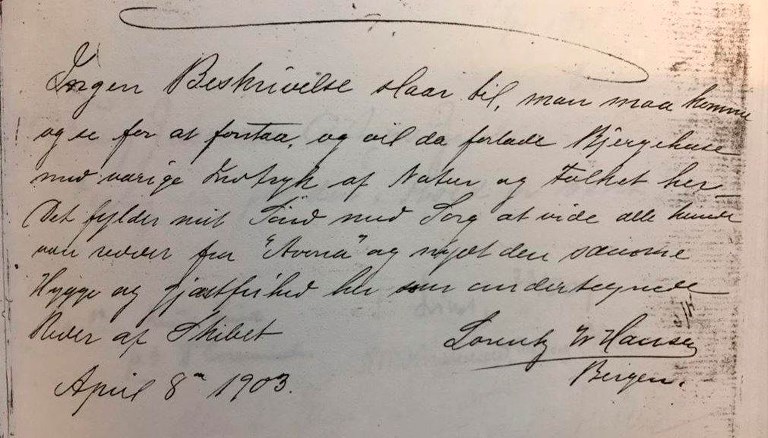 Ingen Beskrivelse slaar til, man maa komme
og se for at forstaa, og vil da forlade Bjergehuse
med varige Indtryk af Natur og Folket her
Det fylder mit Sind med Sorg at vide alle kunde
være reddet fra "Avona" og nydt den samme
Hygge og Gjæstfrihed her som undertegnede
Reder af Skibet
Lorentz W Hansen
Bergen.
April 8 1903.